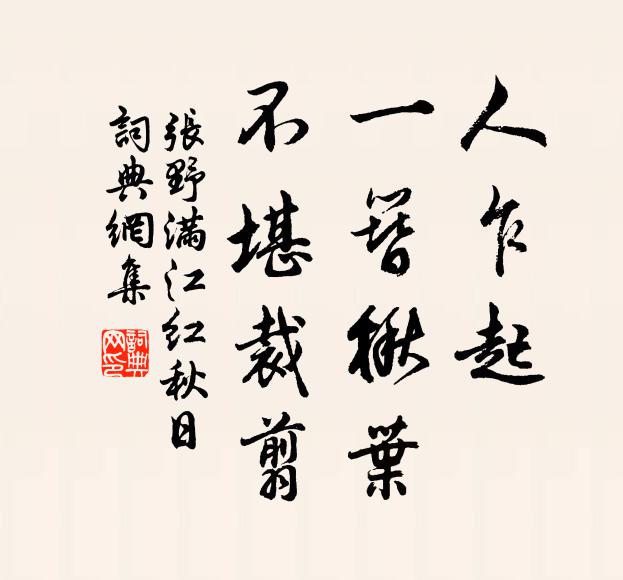 人乍起
一簪楸葉
不堪裁剪
張野滿江紅秋日
詞典網集
詞典網印